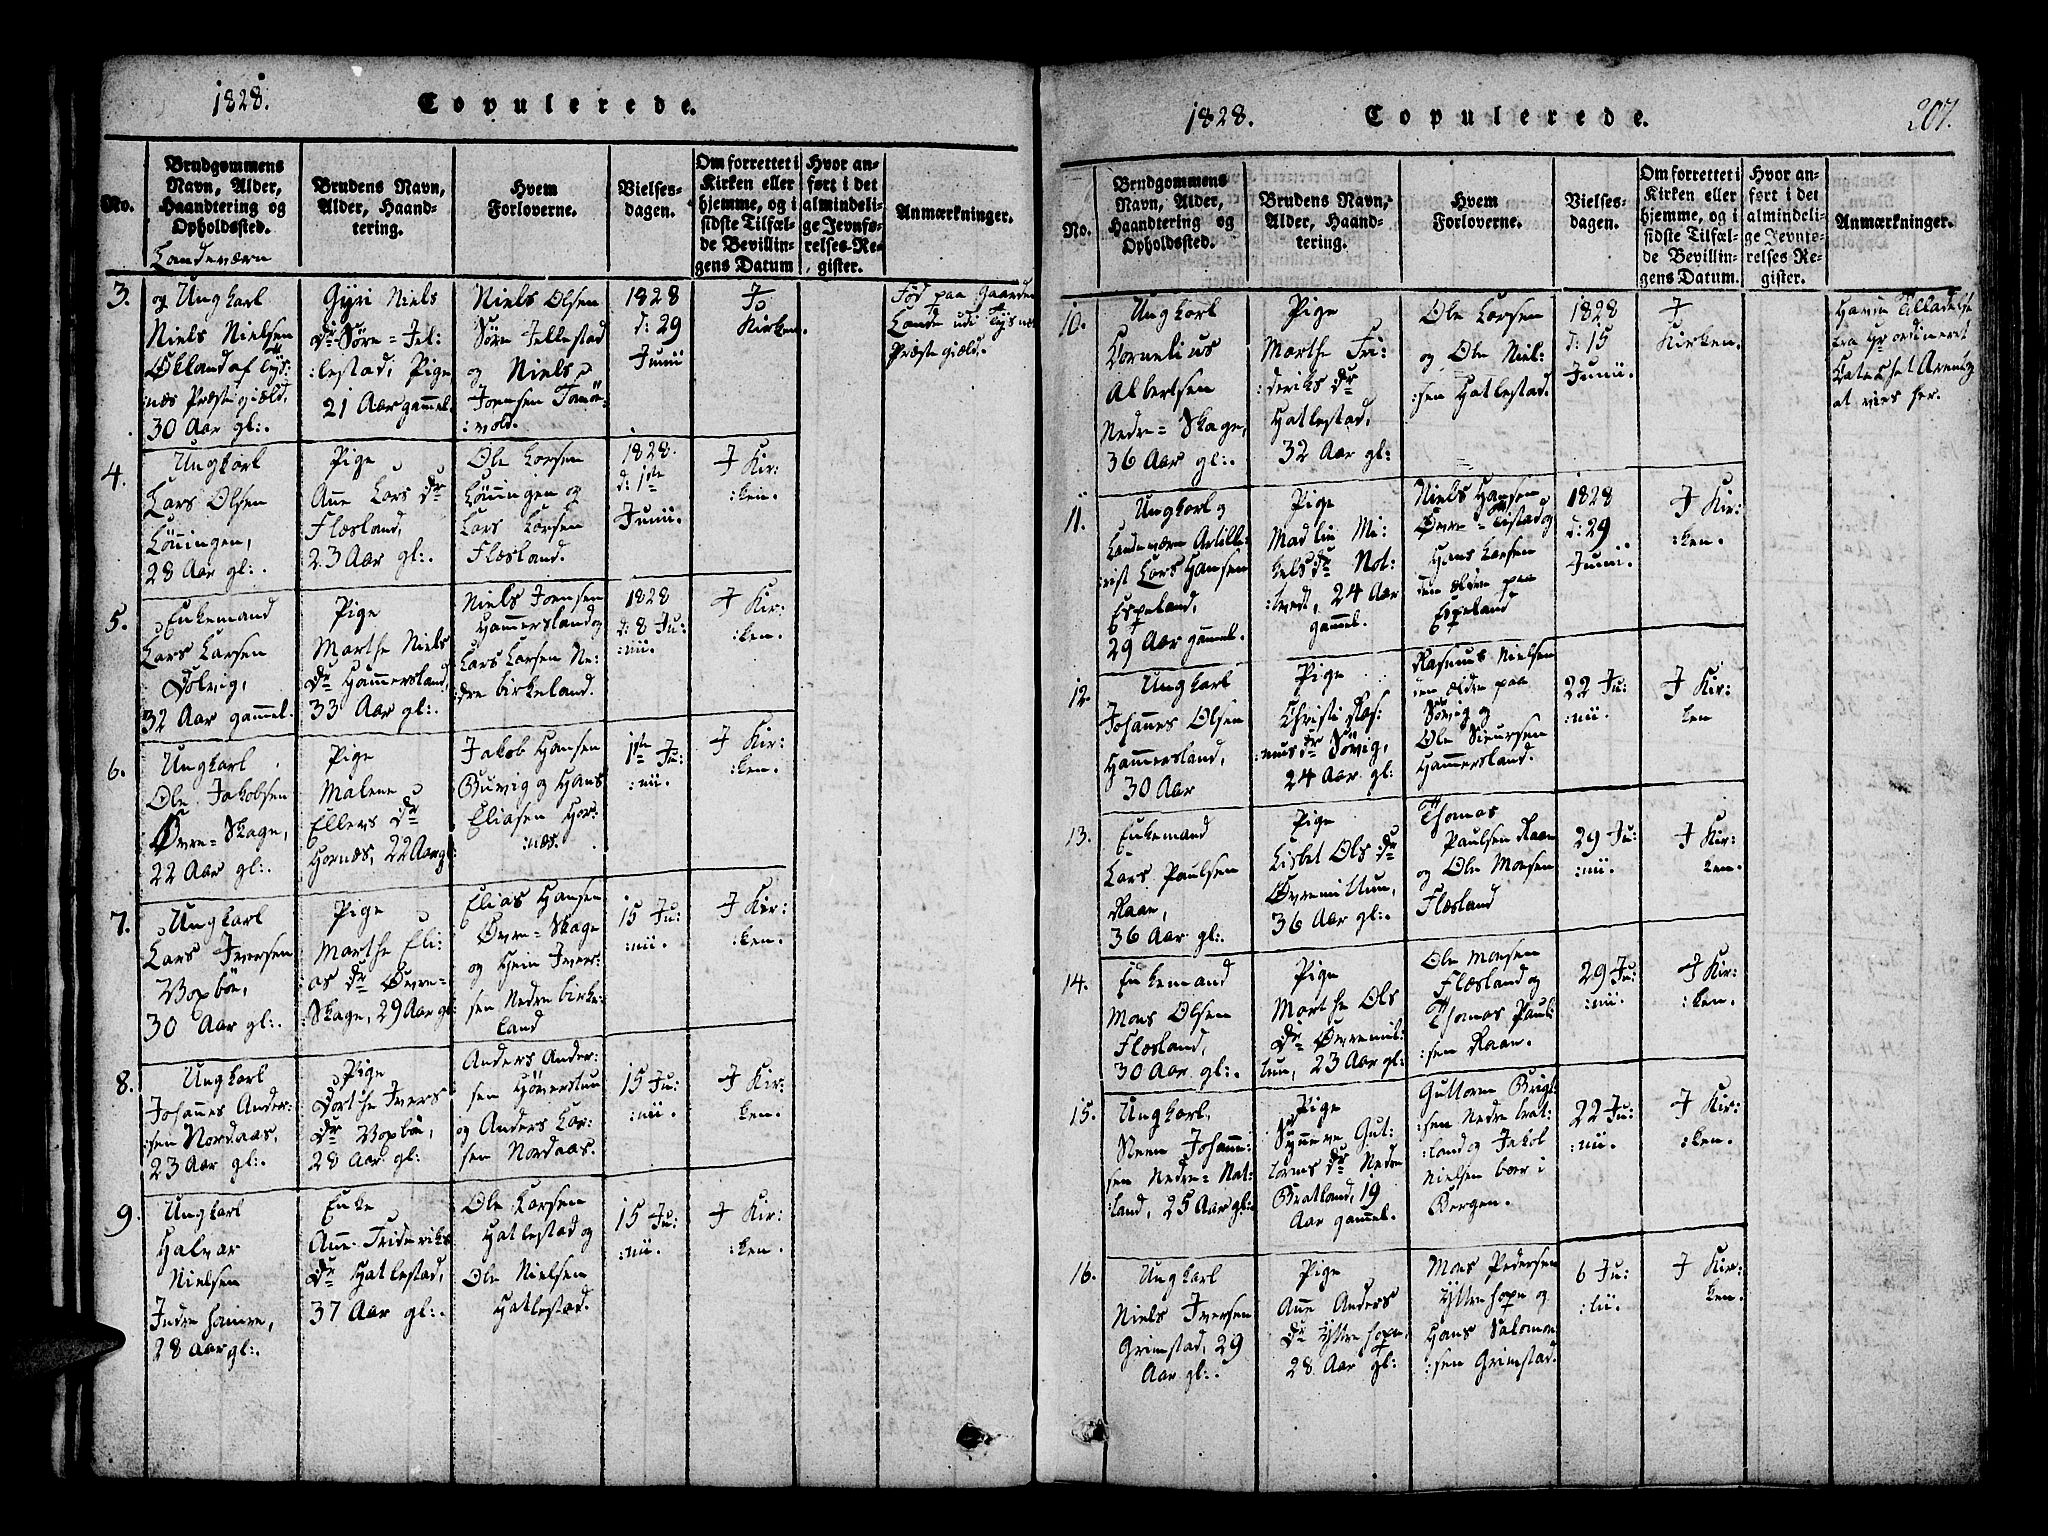 1828.
Copulerede.
No.
Brudgommens
Navn, Alder,
Haandtering og
Opholdssted.
Brudens Navn,
Alder, Haand-
tering.
Hvem
Forloverne.
Vielses-
dagen.
Om forrettet i
Kirken eller
hjemme, og i
sidste Tilfæl-
de Bevillin-
gens Datum
Hvor an-
ført i det
almindeli-
ge Jevnfø-
relses-Re-
gister.
Anmærkninger.
Landeværn
3.
og Ungkarl
Niels Nielsen
Økland af Tys:
:næs Præstegiæld,
30 Aar gl:.
Gyri Niels
Dr Søre= Jel:
:lestad, Pige,
21 Aar gammel.
Niels Olsen
Søre Jellestad
og Niels
Joensen
:vold.
1828
d: 29
Junii
J
Kirken.
Fød paa Gaarden
Lande udi Tysnæs
Præstegiæld.
4.
Ungkarl
Lars Olsen
Løningen,
28 Aar gl:.
Pige
Ane Lars Dr
Flæsland,
23 Aar gl:.
Ole Larsen
Løningen og
Lars Larsen
Flæsland.
1828.
d: 1ste
Junii.
J Kir:
:ken.
5.
Enkemand
Lars Larsen
Dolvig,
32 Aar gammel.
Pige
Marthe Niels
Dr Hammersland,
33 Aar gl:.
Niels Joensen
Hammersland og
Lars Larsen Ne:
:dre birkeland.
1828
d: 8 Ju:
:nii.
J Kir:
:ken.
6.
Ungkarl
Ole Jakobsen
Øvre= Skage,
22 Aar gl:.
Pige
Malene
Ellers Dr
Hornæs, 22 Aar gl:
Jakob Hansen
Buvig og Hans
Eliasen Hor:
:næs.
1ste Ju:
:nii.
J Kir:
:ken.
7.
Ungkarl
Lars Iversen
Vopbøe,
30 Aar gl:.
Pige
Marthe Eli:
:as Dr Øvre=
:Skage, 29 Aar gl:
Elias Hansen
Øvre= Skage
og Hein Iver:
sen Nedre birke:
land
15 Ju:
:nii.
J Kir:
:ken.
8.
Ungkarl
Johannes Ander:
:sen Nordaas,
23 Aar gl:.
Pige
Dorthe Ivers
Dr Vopbøe,
28 Aar gl:
Anders Ander:
sen Høverstuu
og Anders Lar:
sen Nordaas.
15 Ju:
:nii.
J Kir:
ken.
9.
Ungkarl
Halvar
Nielsen
Indre hamre,
28 Aar gl:.
Enke
Ane Frideriks
Dr Hatlestad,
37 Aar gl:.
Ole Larsen
Hatlestad og
Ole Nielsen
Hatlestad.
15 Ju:
:nii.
J Kir:
:ken.
1828.
Copulerede.
207.
No.
Brudgommens
Navn, Alder,
Haandtering og
Opholdssted.
Brudens Navn,
Alder, Haand-
tering.
Hvem
Forloverne.
Vielses-
dagen.
Om forrettet i
Kirken eller
hjemme, og i
sidste Tilfæl-
de Bevillin-
gens Datum.
Hvor an-
ført i det
almindeli-
ge Jevnfø-
relses Re-
gister.
Anmærkninger.
10.
Ungkarl
Cornelius
Albertsen
Nedre= Skage,
36 Aar gl:.
Pige
Marthe Fri:
:deriks Dr
Hatlestad,
32 Aar gl:
Ole Larsen
og Ole Niel:
:sen Hatlestad.
1828
d: 15
Junii.
J
Kirken.
Havde Tilladelse
fra Hr ordineret
Catechet Arentz
at vies her.
11.
Ungkarl og
Landeværn Artille:
:rist Lars Hansen
Espeland,
29 Aar gammel.
Pige
Madlin Mi:
kels Dr Nat:
:tvedt, 24 Aar
gammel.
Niels Hansen
Øvre= Titstad og
Hans Larsen
den ælder paa
Espeland
1828
d: 29
Junii.
J Kir:
:ken.
12
Ungkarl
Johannes Olsen
Hammersland,
30 Aar
Pige
Christi Ras:
:mus Dr Søvig,
24 Aar gl:
Rasmus Nielsen
den ælder paa
Søvig og
Ole Sieursen
Hammersland.
22 Ju:
:nii.
J Kir:
ken
13.
Enkemand
Lars Paulsen
Raae,
36 Aar gl:.
Pige
Lisbet Ols Dr
Øvremiltun,
36 Aar gl:.
Thomas
Paulsen Raae
og Ole Monsen
Flæsland
29 Ju:
:nii.
J Kir:
ken.
14.
Enkemand
Mons Olsen
Flæsland,
30 Aar gl:.
Pige
Marthe Ols
Dr Øvremil:
tun, 23 Aar gl:
Ole Monsen
Flæsland og
Thomas Paul:
:sen Raae.
29 Ju:
:nii.
J Kir:
:ken.
15.
Ungkarl,
Steen Johanne:
sen Nedre= Nat:
:land, 25 Aar gl:
Pige
Synneve Gut:
torms Dr Nedre
Bratland, 19
Aar gammel.
Guttorm Brigt:
:sen Nedre brat:
:land og Jakob
Nielsen boer i
Bergen.
22 Ju:
:nii.
J Kir:
:ken.
16.
Ungkarl
Niels Iversen
Grimstad, 29
Aar gl:.
Pige
Ane Anders
Dr Yttre hope,
28 Aar gl:
Mons Pedersen
Yttre hope og
Hans Salomon
:sen Grimstad.
6 Ju:
:lii.
J Kir:
ken.